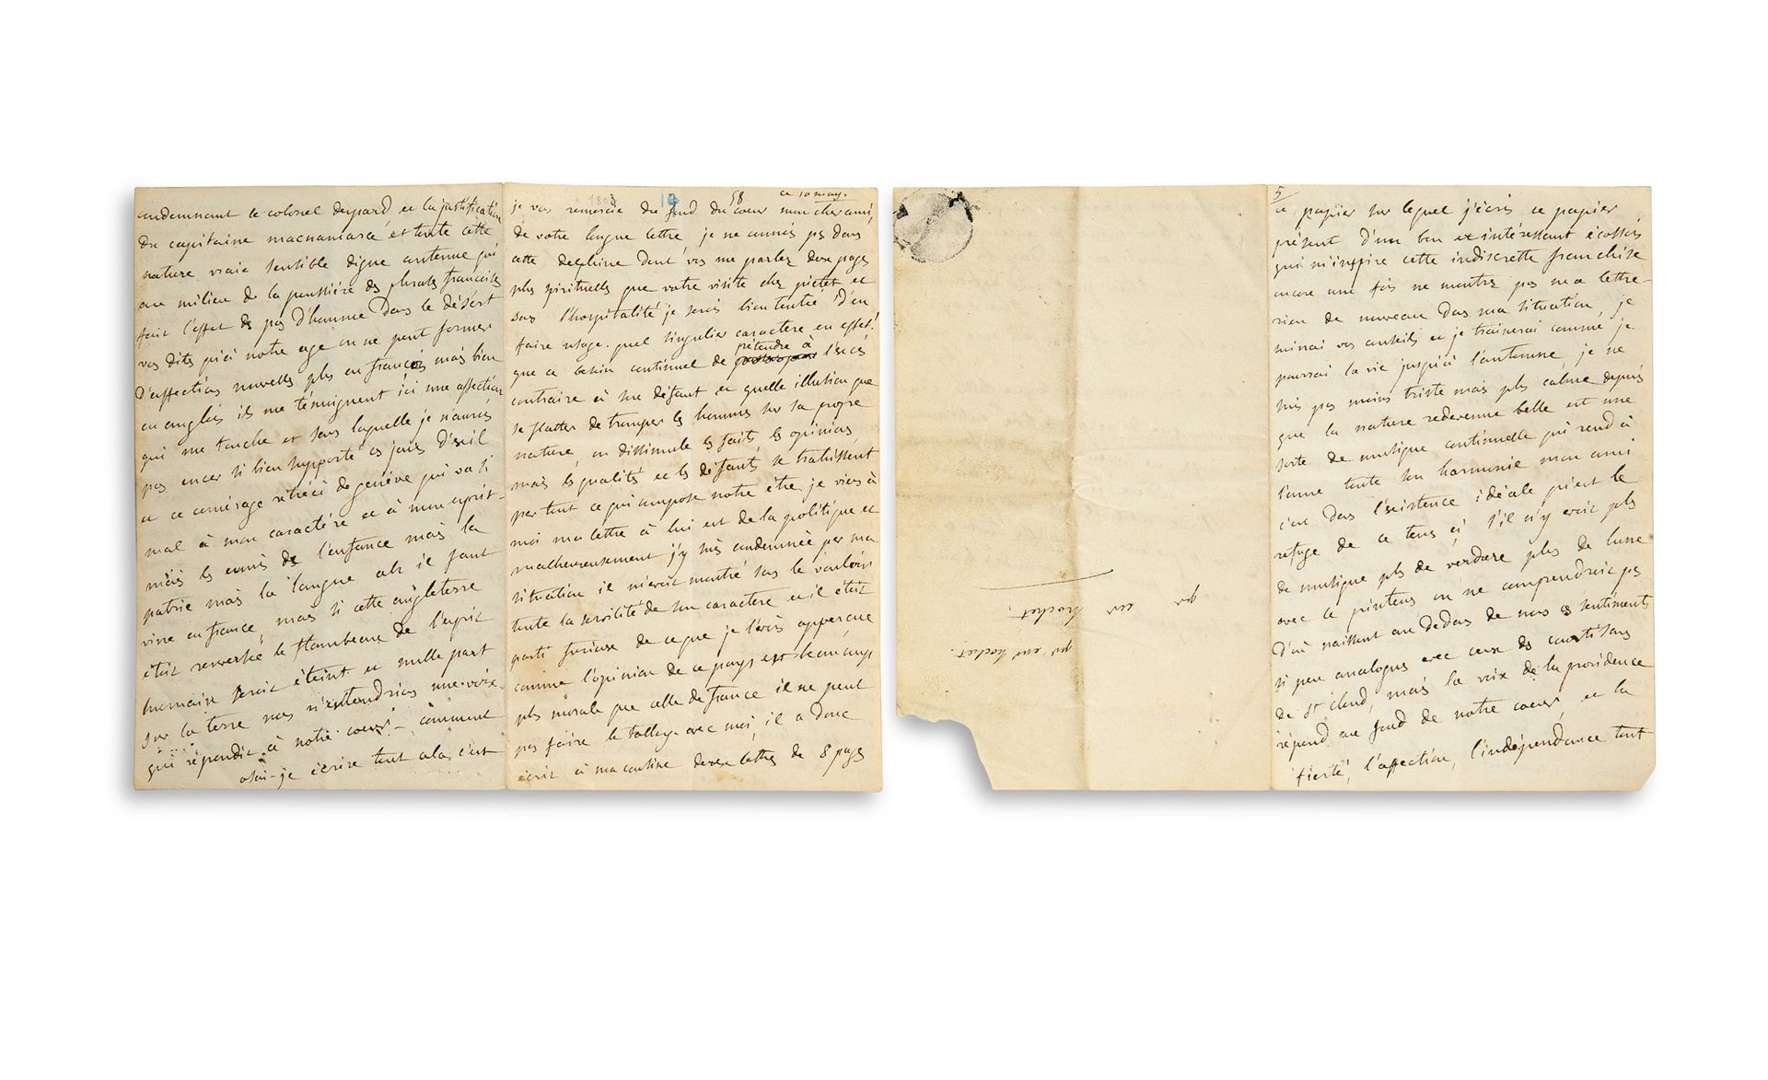 condemnant le colonel despard et la justification
du capitaine macnamara et toute cette
nature vraie sensible digne
au milieu de la poussière des phrases françaises
fait l'effet de pas d'homme dans le désert
vous dites qu'à notre age on ne peut former
d'affections nouvelles plus en français mais bien
en anglais ils me témoignent ici une affection
qui me touche et sans laquelle je n'aurois
pas encor si bien supporté ces jours d'exil
et ce retréci de genève qui va si
mal à mon caractère et à mon esprit
mais les amis de l'enfance mais la
patrie mais la langue ah il faut
vivre en france, mais si cette angleterre
étoit renversée le flambeau de l'esprit
humain seroit éteint et nulle part
sur la terre nous n'entendrions une voix
qui répondit à notre coeur - comment
osai-je écrire tout cela c'est
58 ce 10 may.
je vous remercie du fond du coeur mon cher ami,
de votre longue lettre, je ne connois pas dans
cette delphine dont vous me parlez deux pages
plus spirituelles que votre visite chez pictet et
sans l'hospitalité je serois bien tentée d'en
faire usage. quel singulier caractère en effet!
que ce besoin continuel de prétendre à l'excès
contraire à son défaut et quelle illusion que
se flatter de tromper les hommes sur sa propre
nature, on dissimule les faits, les opinions,
mais les qualités et les défauts se trahissent
par tout ce qui compose notre être je viens à
moi ma lettre à lui est de la politique et
malheureusement j'y suis condamnée par ma
situation il m'avoit montré sans le vouloir
toute la servilité de son caractère et il étoit
parti furieux de ce que je l'avois apperçue
comme l'opinion de ce pays est beaucoup
plus morale que celle de france il ne peut
pas faire le avec moi, il a donc
écrit à ma cousine deux lettres de 8 pages
qu'est hochet.
hochet.
5
ce papier sur lequel j'écris ce papier
présent d'un bon et intéressant écossois
qui m'inspire cette indiscrette franchise
encore une fois ne montrez pas ma lettre -
rien de nouveau dans ma situation, je
suivrai vos conseils et je trainerai comme je
pourrai la vie jusqu'à l'automne, je ne
suis pas moins triste mais plus calme depuis
que la nature redevenue belle est une
sorte de musique continuelle qui rend à
l'ame toute son harmonie mon ami
c'est dans l'existence idéale qu'est le
refuge de ce tems ci, s'il n'y avoit plus
de musique plus de verdure plus de lune
avec ce printems on ne comprendroit pas
d'où naissent au dedans de nous ces sentiments
si peu analogues avec ceux des courtisans
de st cloud, mais la voix de la providence
répond au fond de notre coeur, et la
fierté, l'affection, l'indépendance tout